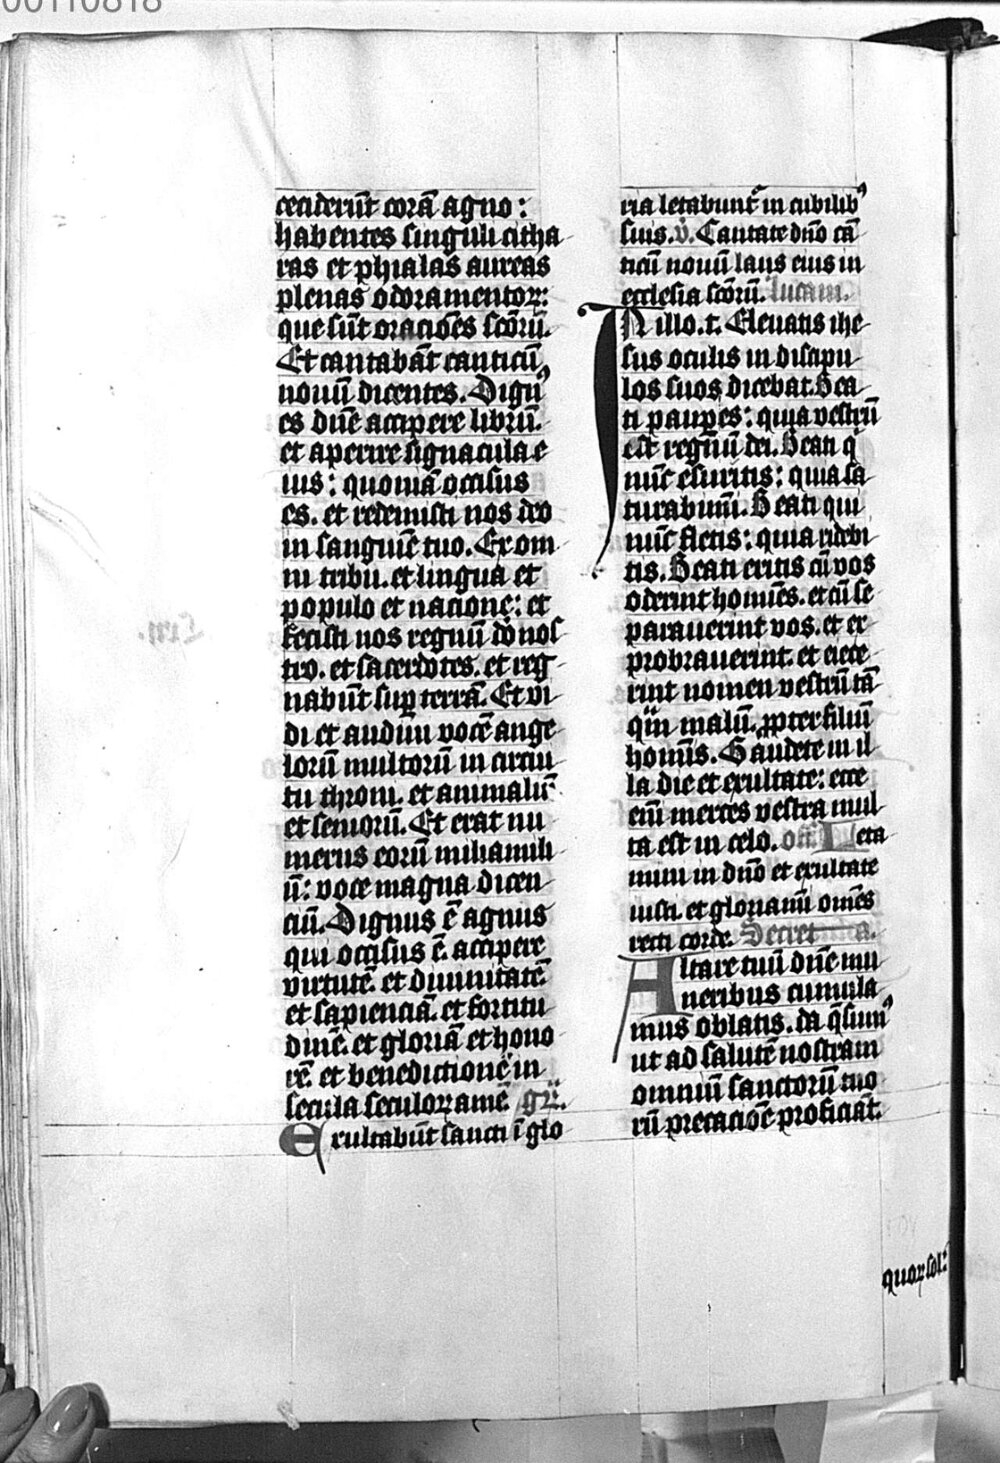 00110818
ceciderūt corā agno:
habentes singuli citha
ras et phialas aureas
plenas odoramentoꝝ:
que sūt oraciōes sc̄orū.
Et cantabāt canticū
nouū dicentes. Dignꝰ
es dn̄e accipere librū.
et aperire signacula e
ius: quoniā occisus
es. et redemisti nos deo
in sanguīe tuo. Ex om
ni tribu. et lingua et
populo et nacione: et
fecisti nos regnū dō nos
tro. et sacerdotes. et reg
nabūt suꝑ terrā. Et vi
di et audiui vocē ange
lorū multorū in circui
tu throni. et animaliū
et seniorū. Et erat nu
merus eorū milia mili
ū: voce magna dicen
ciū. Dignus ē agnus
qui occisus ē. accipere
virtutē. et diuinitatē.
et sapienciā. et fortitu
dinē. et gloriā et hono
rē. et benedictionē in
secula seculoꝝ amē. gr̄.
Exultabūt sancti ī glo
ria letabunt᷑ in cubilibꝰ
suis. v̄. Cantate dn̄o cā
ticū nouū laus eius in
ecclesia sc̄orū. lucam.
IN illo. t. Eleuatis ihe
sus oculis in discipu
los suos dicebat. Bea
ti pauꝑes: quia vestrū
est regnū dei. Beati q
nūc esuritis: quia sa
turabimī. Beati qui
nūc fletis: quia ridebi
tis. Beati eritis cū vos
oderint homīes. et cū se
parauerint vos. et ex
probrauerint. et eiece
rint nomen vestrū tā
qͣm malū. ꝓpter filiū
homīs. Gaudete in il
la die et exultate: ecce
enī merces vestra mul
ta est in celo. off. Leta
mini in dn̄o et exultate
iusti. et gloriamī omēs
recti corde. Secreta.
Altare tuū dn̄e mu
neribus cumula
mus oblatis. da q̄sumꝰ
ut ad salutē nostram
omniū sanctorū tuo
rū precaciōe proficiat.
quoꝝ sol: